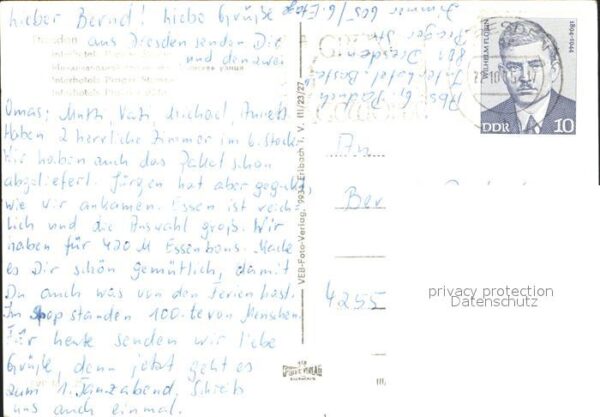 Lieber Bernd! Liebe Grüße
aus Dresden senden Dir
und den zwei
Omas; Mutti, Vati, Michael, Annett.
Haben 2 herrliche Zimmer im 6. Stock.
Wir haben auch das Paket schon
abgeliefert. Jürgen hat aber geguckt,
wie wir ankamen. Essen ist reich-
lich und die Auswahl groß. Wir
haben für 420 M Essenbons. Mache
es Dir schön gemütlich, damit
Du auch was von den Ferien hast.
Im Shop standen 100-te von Menschen.
Für heute senden wir liebe
Grüße, denn jetzt geht es
zum 1. Tanzabend. Schreib
uns auch einmal.
Dresden
Interhotels Prager Straße
VEB-Foto-Verlag, 9933 Erlbach i. V. III/23/27
Abs. G.
Interhotel
801 Dresden
Prager Str.
Zimmer 605/6. Etage
WILHELM FLORIN
1894-1944
DDR 10
An
Ber
4255
privacy protection
Datenschutz